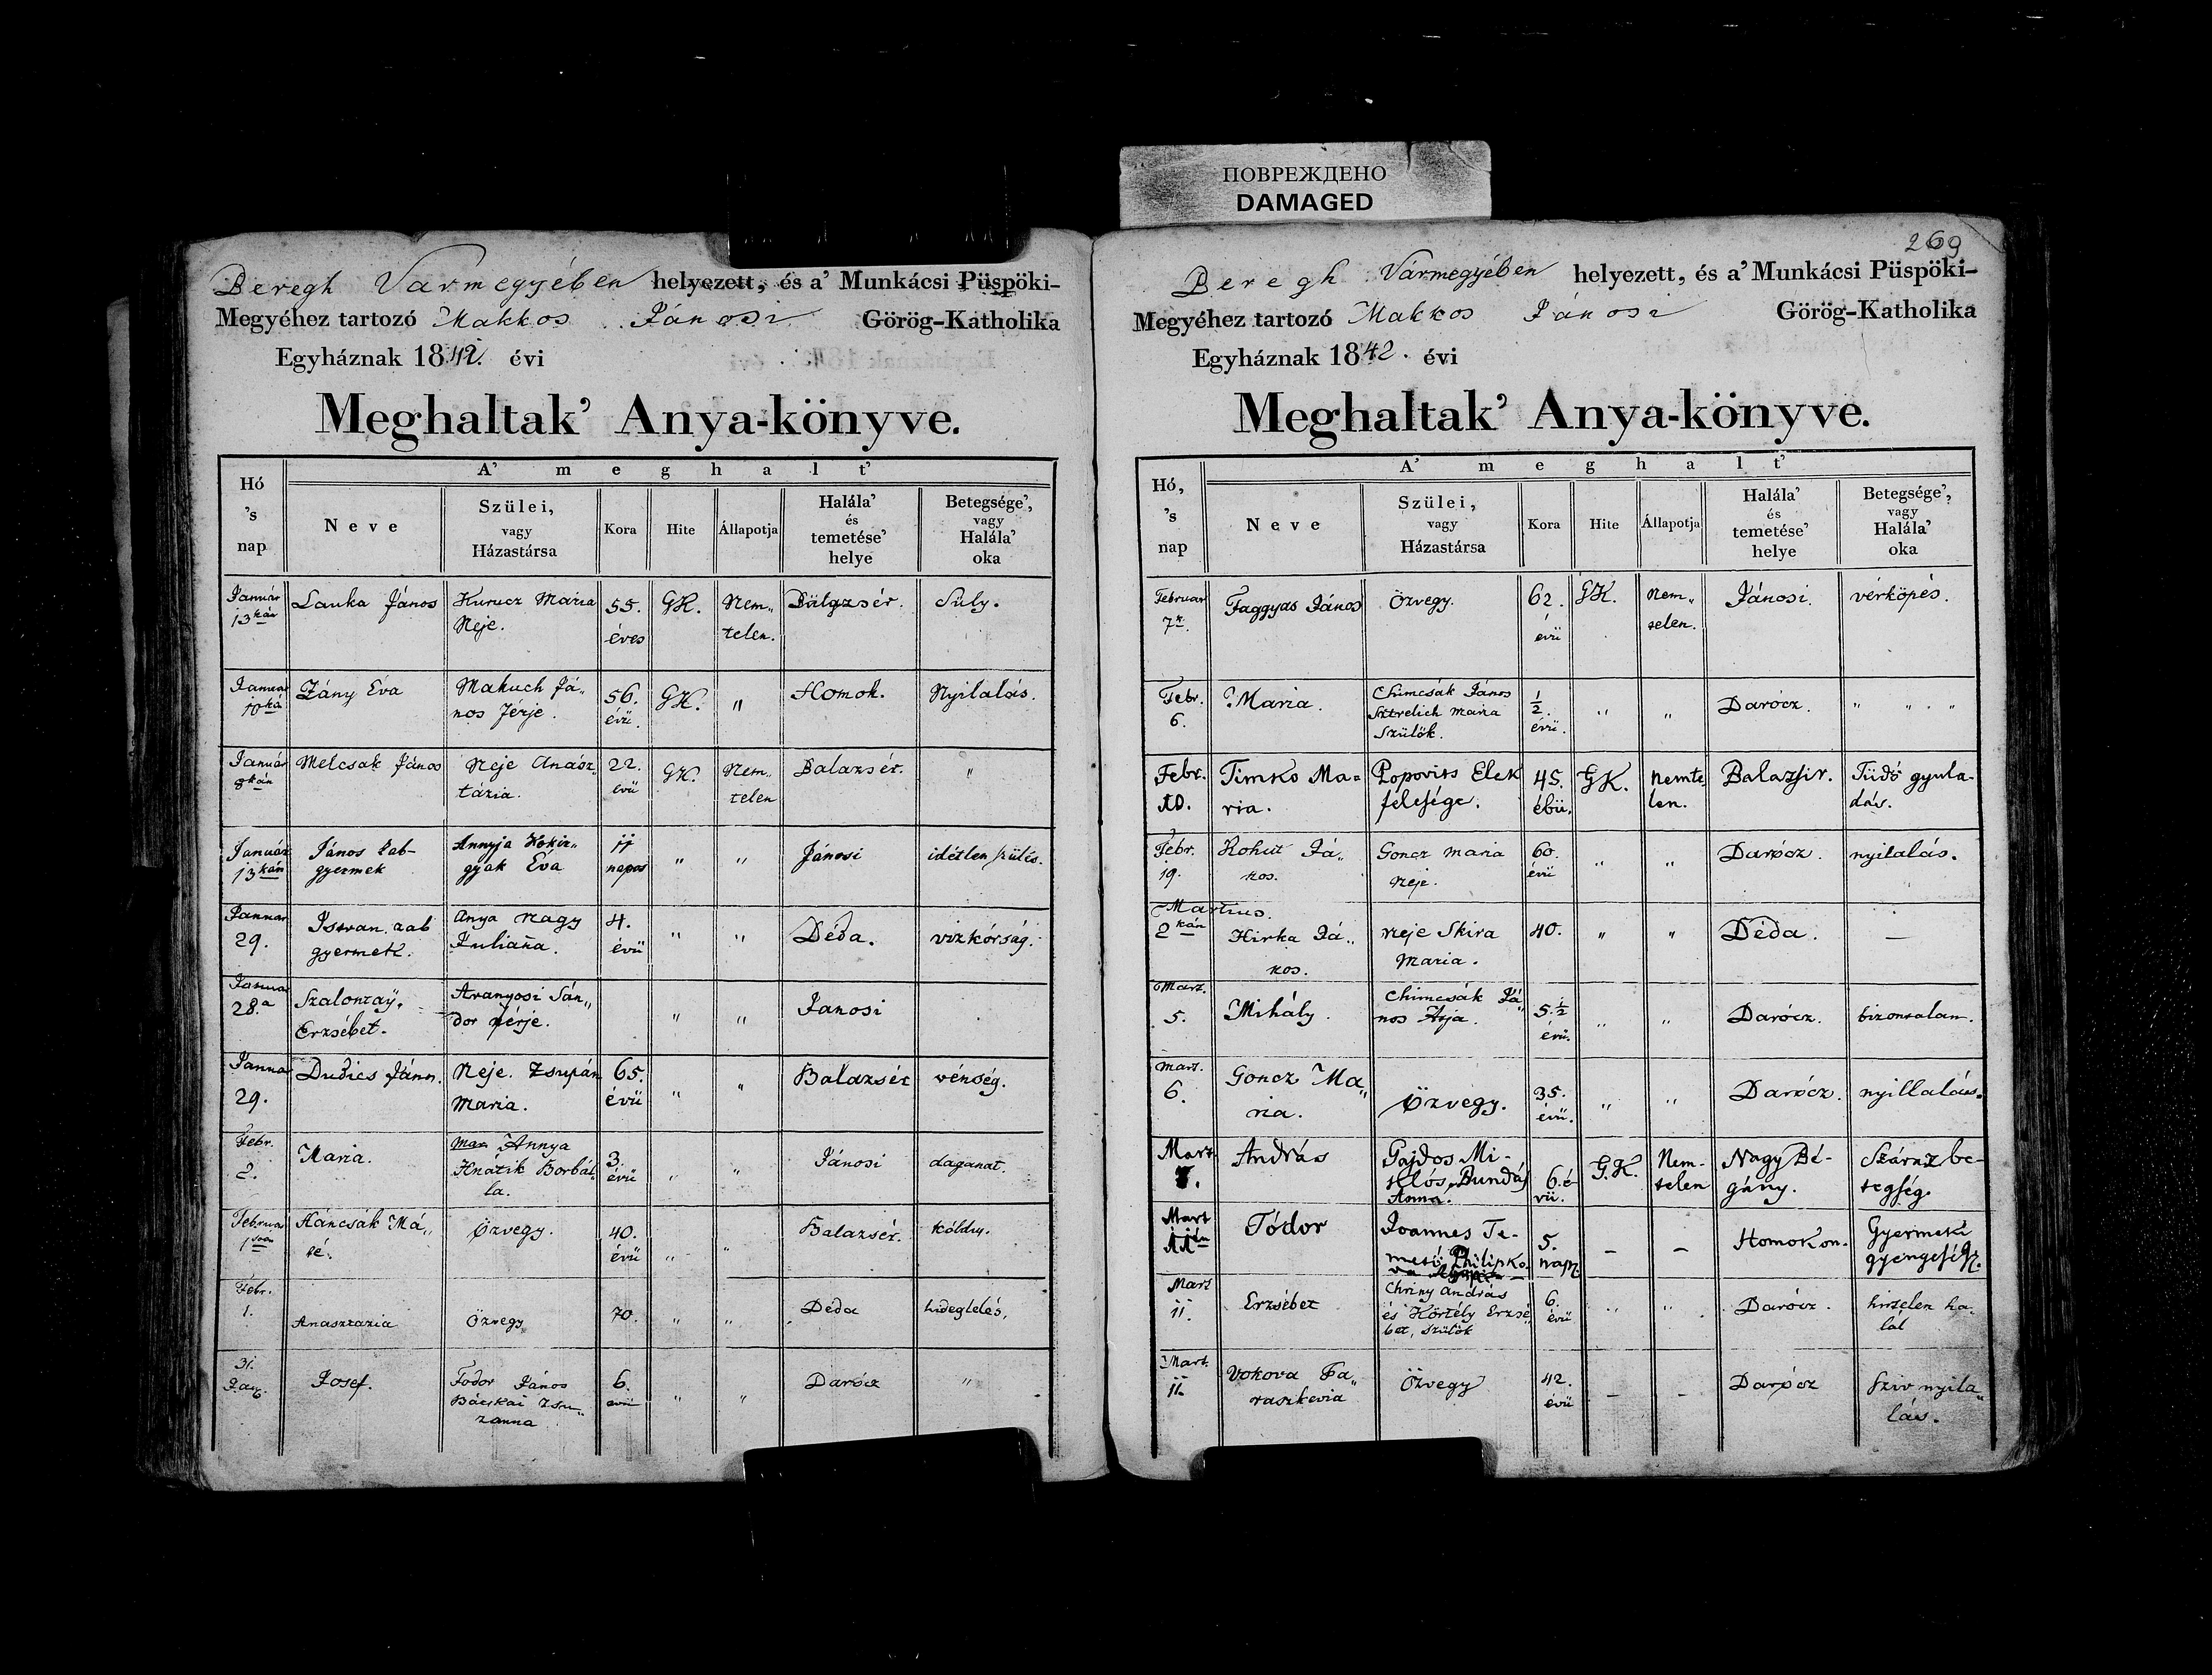 ПОВРЕЖДЕНО
DAMAGED
Beregh Vármegyében helyezett, és a' Munkácsi Püspöki-
Megyéhez tartozó Makkos Jánosi Görög-Katholika
Egyháznak 1842. évi
Meghaltak' Anya-könyve.
A' meghalt'
Hó 's nap
Neve
Szülei, vagy Házastársa
Kora
Hite
Állapotja
Halála' és temetése' helye
Betegsége', vagy Halála' oka
Január 13kán Lauka János Kurucz Maria Neje. 55. éves GK. Nem„telen. Balazsér. Súly.
Január 10ká Zány Éva Makuch Já„nos férje. 56. évü. GK. „ Homok. Nyilalás.
Január 8kán Melcsak János Neje Anász„tázia. 22. évü GK. Nem„telen Balazsér. „
Január 13kán János zab-gyermek Annyja Éva 11 napos „ „ Jánosi idétlen szülés.
Januar 29. Istvan zab gyermek. Anya Nagy Juliána. 4. évü „ „ Déda. vizkórság.
Januar 28.a Erzsébet. Aranyosi Sán„dor férje. „ „ Janosi
Januar 29. Dudics János. Neje. Zsupán Maria. 65. évü „ „ Balazsér vénség.
Febr. 2. Maria. Annya Hnatik Borbál„la. 3. évü „ „ Jánosi daganat.
Februa 1sőn Háncsák Má„té. Özvegy. 40. évü „ „ Balazsér. köldny.
Febr. 1. Anasztazia Özvegy 70. „ „ Deda hideglelés,
31. Jan. Josef. Fodor János Bácskai Zsu„zanna 6. évü „ „ Darócz „
269
Beregh Vármegyében helyezett, és a' Munkácsi Püspöki-
Megyéhez tartozó Makkos Jánosi Görög-Katholika
Egyháznak 1842. évi
Meghaltak' Anya-könyve.
A' meghalt'
Hó, 's nap
Neve
Szülei, vagy Házastársa
Kora
Hite
Állapotja
Halála' és temetése' helye
Betegsége', vagy Halála' oka
Februar 7. Faggyas János Özvegy. 62. évü GK. Nem„telen. Jánosi. vérköpés.
Febr. 6. Maria. Chimcsák János Maria Szülök. 1/2. évü. „ „ Darócz. „ „ „
Febr. 10. Timko Ma=ria. Popovits Elek felesége. 45. ébü. GK. Nemte„len. Balazsir. Tüdő gyula-dás.
Febr. 19. Kohut Já„kos. Goncz Maria Neje. 60. évü „ „ Darócz. nyilalás.
Martius. 2kán Hirka Já„kos. Neje Skira Maria. 40. „ „ Déda. —
Mart. 5. Mihály. Chimcsák Já„nos Atja. 5.1/2 évü. „ „ Darócz. bizontalan.
Mart. 6. Goncz Ma„ria. Özvegy. 35. évü. „ „ Darócz. nyillalás.
Mart. 7. András Gajdos Mi-klós, Bundás Anna. 6. é-vü. G.K. Nem-telen Nagy Bé-gány. Száraz be-tegség.
Mart 11én Tódor Joannes Te-mető Philipko-va 5. nap. — — Homokon. Gyermeki gyengeség.
Mart 11. Erzsébet Chriny András és Körtély Erzsé„bet, szülök 6. évü „ „ Darócz. hirtelen ha-lál
Mart. 11. Vokova Pa„raszkevia Özvegy 42. évü — — Darócz Sziv nyila„lás.